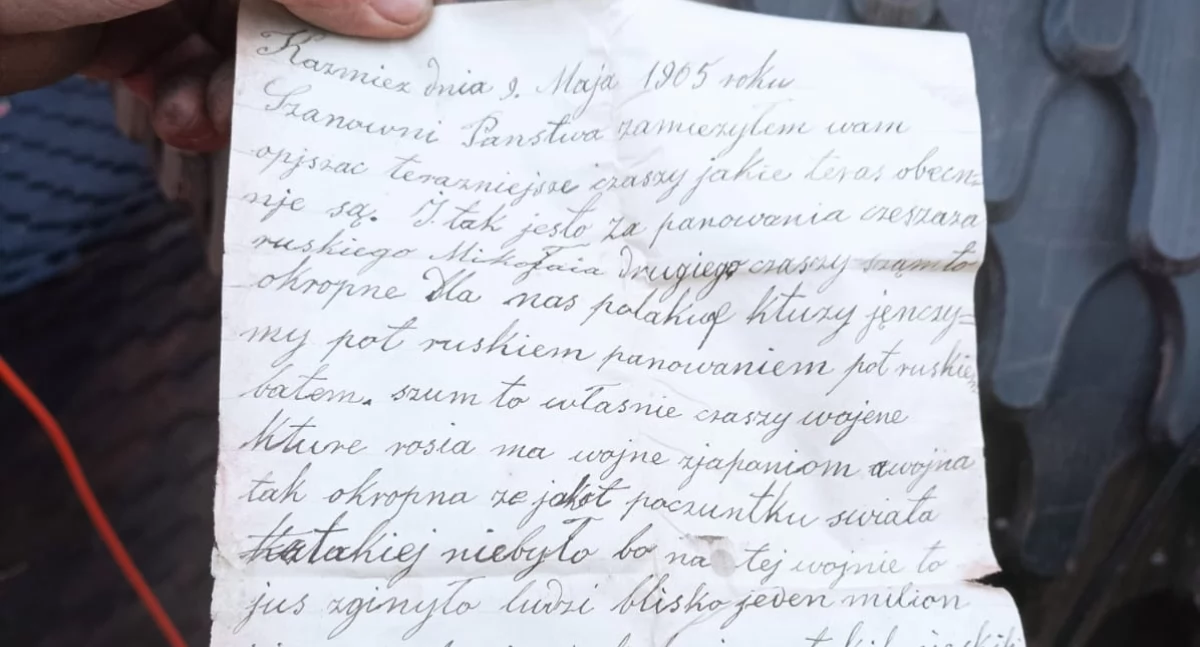 Kazmiez dnia 9. Maja 1905 roku
Szanowni Panstwa zamiezyłem wam
opjszac terazniejsze czaszy jakie teras obecn-
nje są. I tak jesto za panowania czeszaza
ruskiego Mikołaia drugiego czaszy sząmto
okropne dla nas polakuf ktuzy jęnczy=
my pot ruskiem panowaniem pot ruskiem
batem. szum to własnie czaszy wojene
kture rosia ma wojne zjaponiom awojna
tak okropna ze jakot poczuntku swiata
takiej niebyło bo na tej wojnie to
jus zginyło ludzi blisko jeden milion